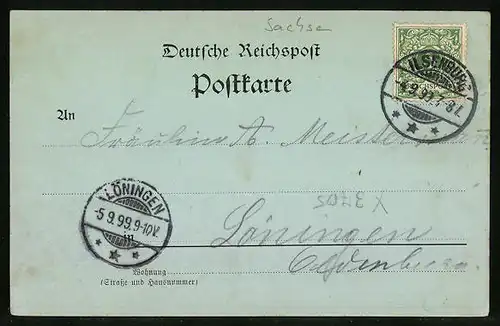 Sachse
Deutsche Reichspost
Postkarte
ILSENBURG
4.9.99.7-8N.
REICHSPOST
An
Fräulein A. Meister
LÖNINGEN
-5 9.99.9-10V.
X 3705
in
Löningen
Oldenburg.
Wohnung
(Straße und Hausnummer)